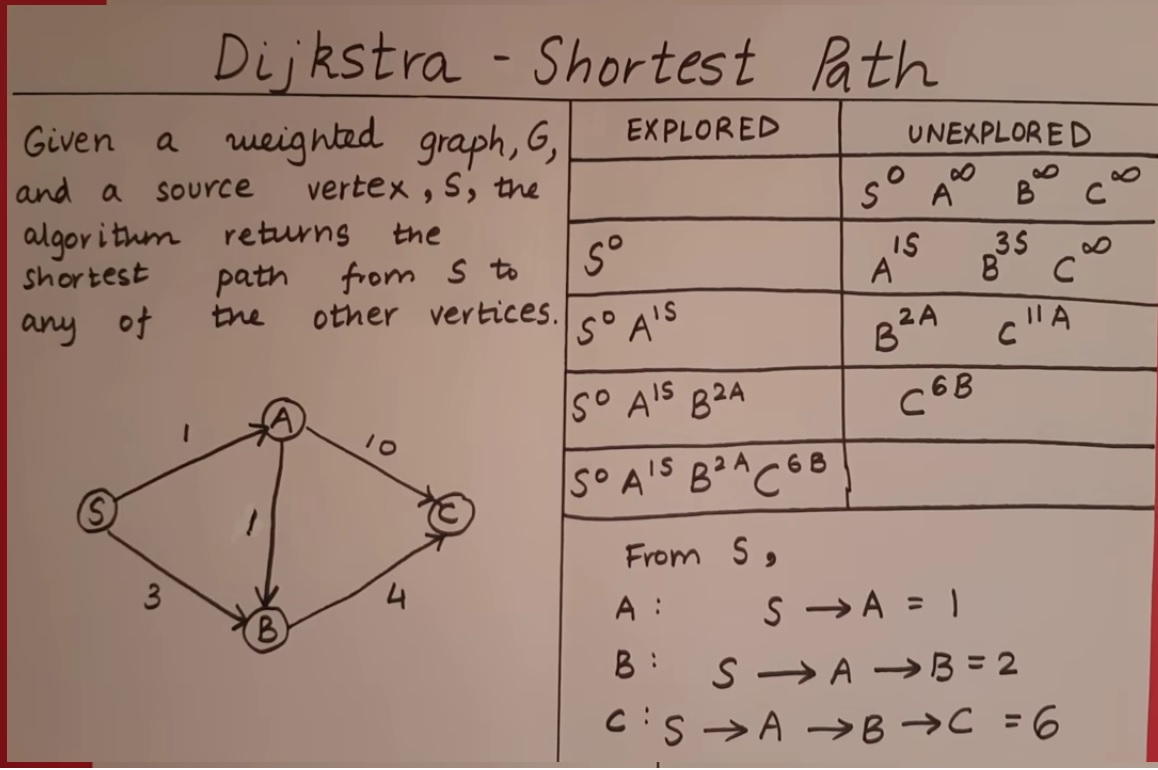 Dijkstra - Shortest Path
Given a weighted graph, G,
and a source vertex, S, the
algorithm returns the
shortest path from S to
any of the other vertices.
1
A
10
S
1
C
3
4
B
EXPLORED UNEXPLORED
S⁰ A^∞ B^∞ C^∞
S⁰ A^1S B^3S C^∞
S⁰ A^1S B^2A C^11A
S⁰ A^1S B^2A C^6B
S⁰ A^1S B^2A C^6B
From S,
A: S → A = 1
B: S → A → B = 2
C: S → A → B → C = 6